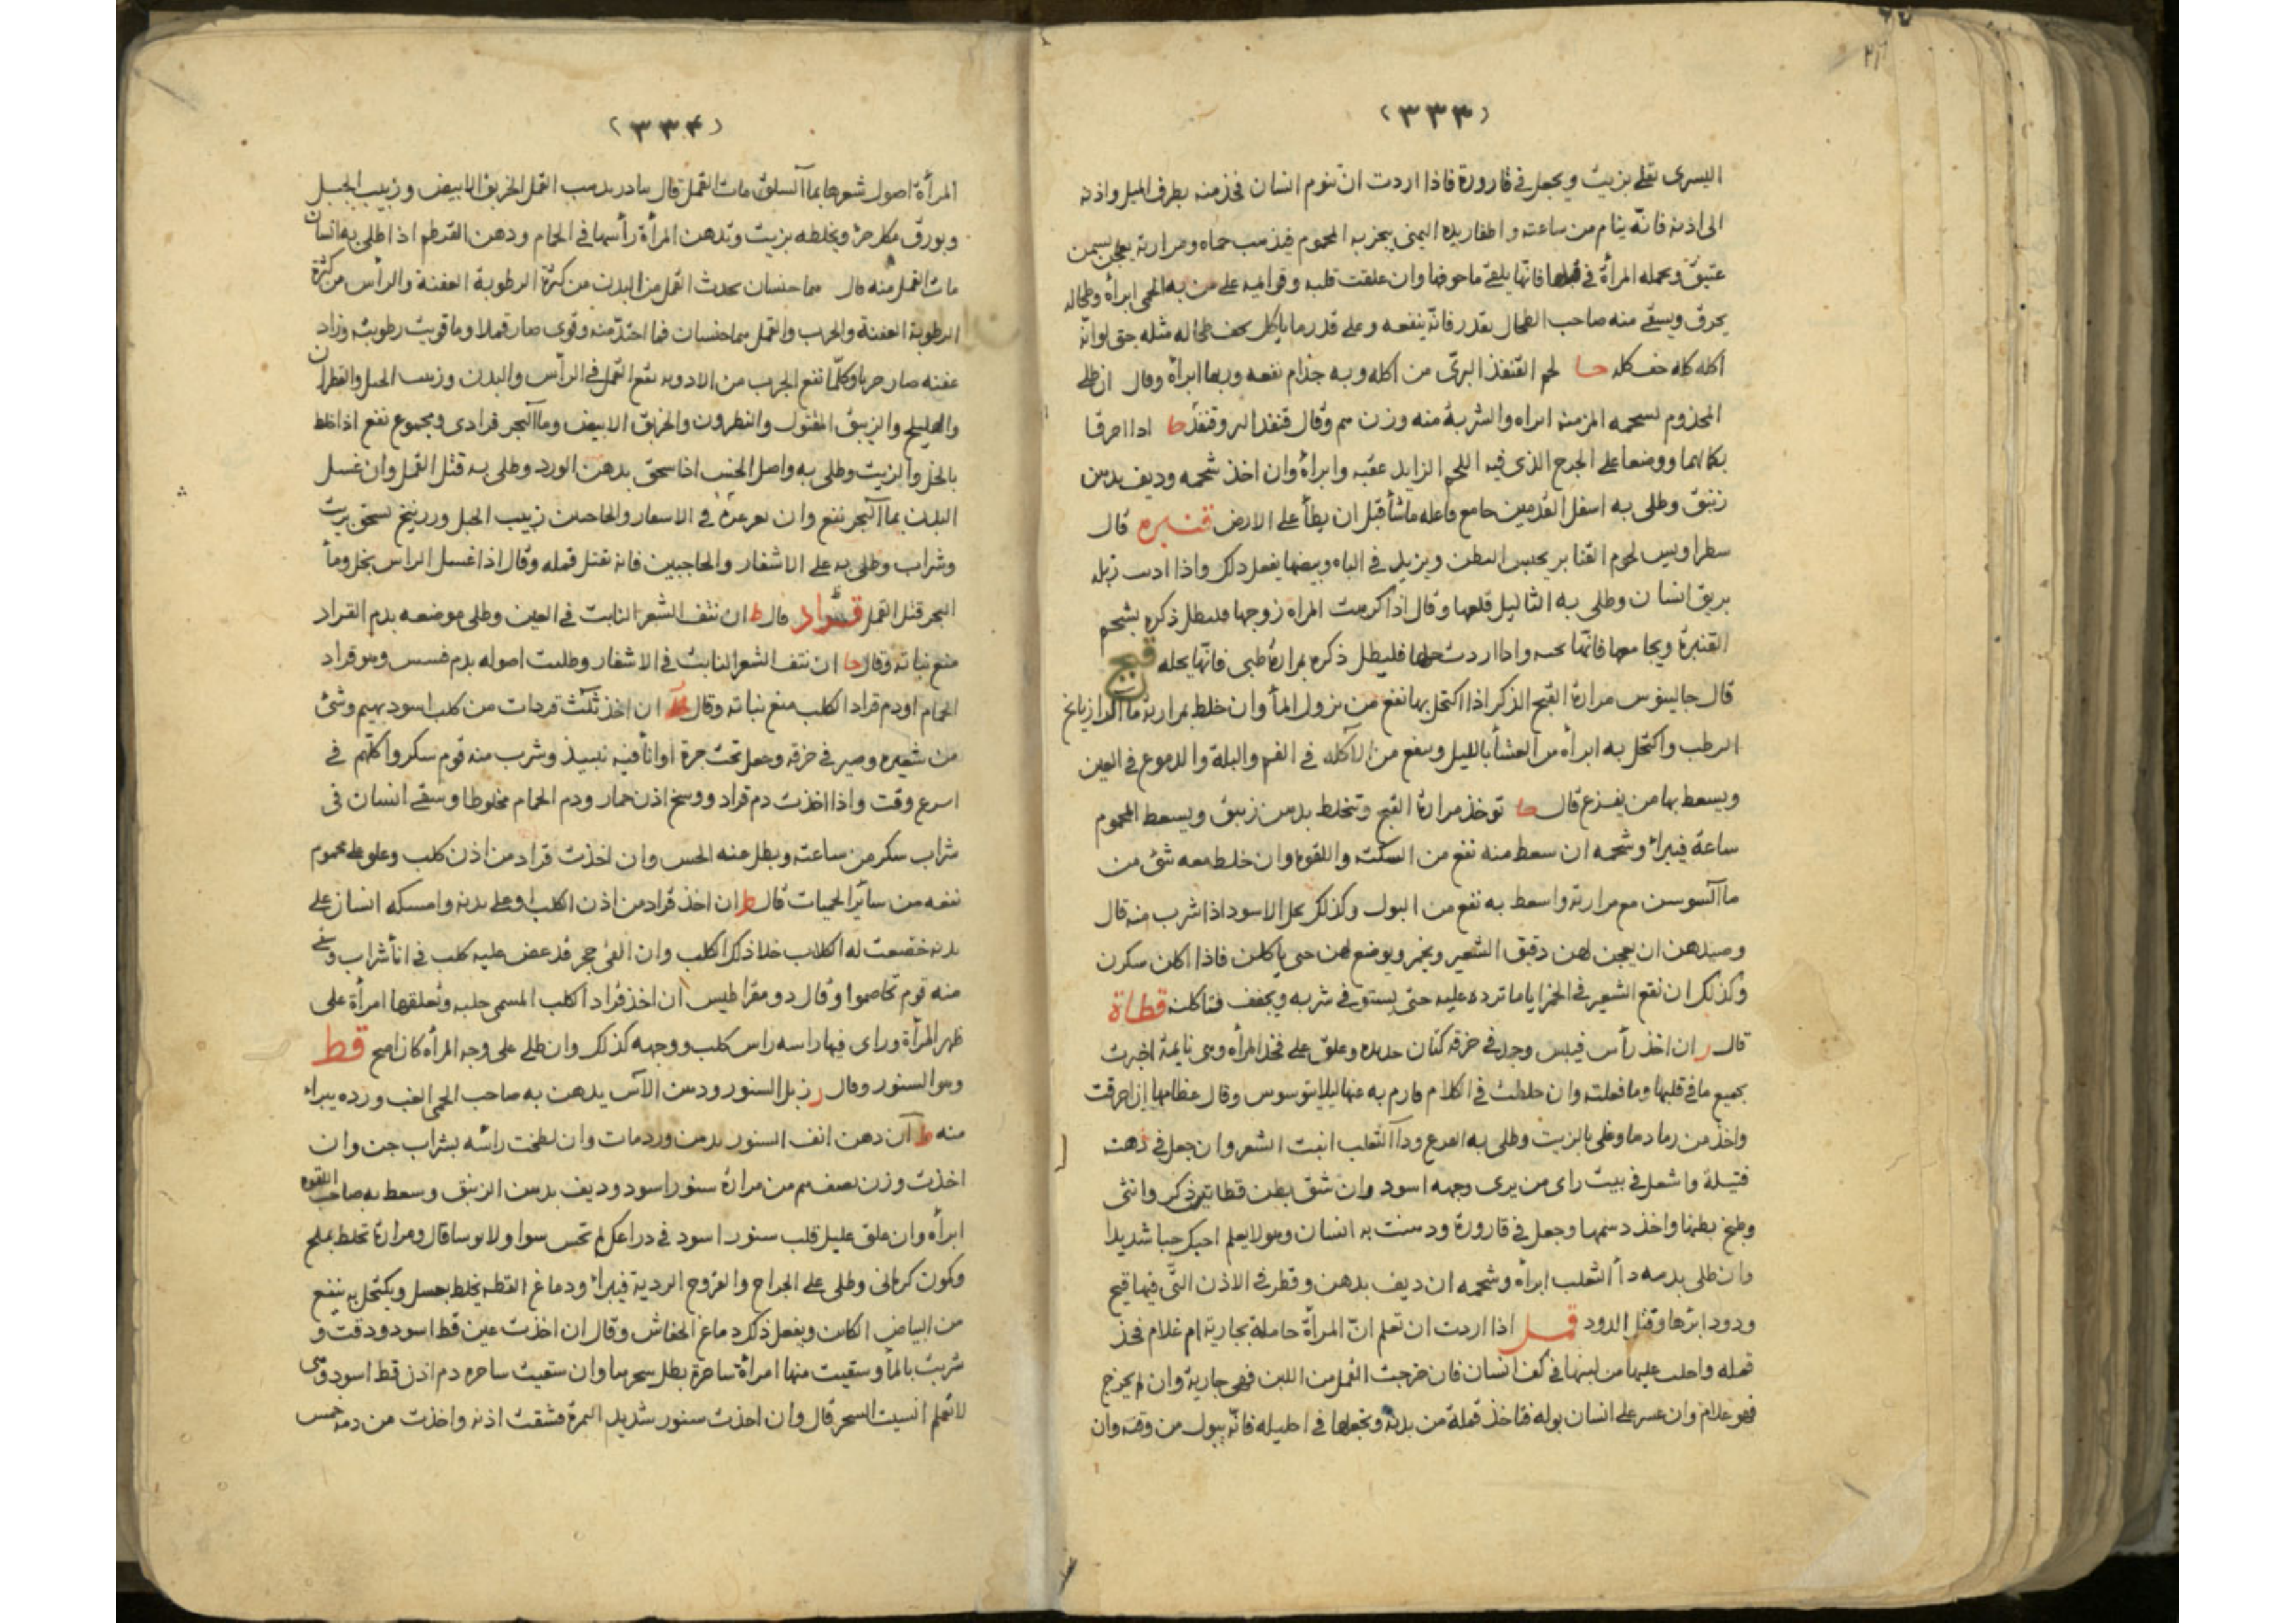 (٣٣٣)
اليسرى تغلى بزيت ويجعل فى قارورة فاذا اردت ان تنوم انسان فخذ منه بطرف الميل واذنه
الى اذنه فانّه ينام من ساعته واظفار يده اليمنى يبخر به المحموم فيذهب حماه ومرارته يعجن بسمن
عتيق وتحمله المرأة فى قبلها فانّها يلقى ما جوفها وان علقت قلبه وقوايمه على من به الحمى ابراه وطحاله
يحرق ويسقى منه صاحب الطحال بقدر فانّه ينفعه وعلى قدر ما ياكل يجف طحاله مثله حتى لوانّه
اكله كله جف كله حا لحم القنفذ البرّى من اكله وبه جذام نفعه وربما ابراه وقال ان طلى
المجذوم بشحمه المزمنه ابراه والشربة منه وزن وقال قنفذ البر وقنفذ حا اذا احرقا
بكمالهما ووضعا على الجرح الذى فيه اللحم الزايد عقبه وابراه وان اخذ شحمه وديف بدهن
زنبق وطلى به اسفل القدمين جامع فاعله ماشأ قبل ان يطأ على الارض قنبره قال
لحوم القنابر يحبس البطن ويزيد فى الباه وبيضها يفعل ذلك واذا اديب زبله
بريق انسان وطلى به الثاليل قلعها وقال اذا كرهت المراه زوجها فليطل ذكره بشحم
القنبرة ويجامعها فانّها تحبه واذا اردت حلها فليطل ذكره بمرارة ظبى فانّها يحله قبج
قال جالينوس مرارة القبج الذكر اذا اكتحل بها نفع من نزول المأ وان خلط بمرارته ما الرازيانج
الرطب واكتحل به ابرأه من العشأ بالليل وينفع من الآكله فى الفم والبلة والدموع فى العين
ويسعط بها من يفزع قال حا توخذ مرارة القبج وتخلط بدهن زنبق ويسعط المحموم
ساعة فيبرأ وشحمه ان سعط منه نفع من السكته واللقوه وان خلط معه شئ من
ماآلسوسن مع مرارته واسعط به نفع من البول وكذلك الاسود اذا شرب منه قال
وصيدهن ان يعجن لهن دقيق الشعير وبخمر ويوضع لهن حتى ياكلن فاذا اكلن سكرن
وكذلك ان نقع الشعير فى الخمر اياما ترده عليه حتى يستوفى شربه ويجفف فتاكله قطاة
قال ر ان اخذ رأس فيبس وجعل فى خرقه كتان جديده وعلق على فخذ المرأه وهى نايمة اخبرت
بجميع ما فى قلبها وما فعلته وان خلطت فى الكلام فارم به عنها ليلا يتوسوس وقال عظامها اذا احرقت
واخذ من رمادها وغلى بالزيت وطلى به القرع ودآ الثعلب انبت الشعر وان جعل فى دهنه
فتيلة واشعل فى بيت راى من يرى وجهه اسود وان شق بطن قطاتين ذكر وانثى
وطبخ بطنها واخذ دسمها وجعل فى قارورة ودهنت به انسان وهو لا يعلم احبك حبا شديدا
وان طلى بدمه دأ الثعلب ابرأه وشحمه ان ديف بدهن وقطر فى الاذن التّى فيها قيح
ودود ابرها وقتل الدود قمل اذا اردت ان تعلم انّ المرأة حاملة بجارية ام غلام فخذ
قمله واحلب عليها من لبنها فى كف انسان فان خرجت القمل من اللبن فهى جارية وان لم يخرج
فهو غلام وان عسر على انسان بوله فتاخذ قملة من بدنه وتجعلها فى احليله فانّه يبول من وقته وان
(٣٣۴)
المرأة اصول شعرها بماآلسلق مات القمل قال يذهب القمل الخربق الابيض وزبيب الجبل
وبورق مكلس ويخلطه بزيت وتدهن المرأة رأسها فى الحمام ودهن القرطم اذا اطلى به انسان
مات القمل منه قال هما جنسان يحدث القمل من البدن من كثرة الرطوبة العفنة والرأس من كثرة
الرطوبة العفنة والجرب والقمل هما جنسان فما احتدّ منه وقوى صار قملا وما قويت رطوبته وزاد
عفنه صار جربا وكلّما تنفع الجرب من الادويه تنفع القمل فى الرأس والبدن وزبيب الجبل والقطران
والهليلج والزيبق المقتول والنطرون والخربق الابيض وماآلبحر فرادى ومجموع نفع اذا خلط
بالخل والزيت وطلى به واصل اذا سحق بدهن الورد وطلى به قتل القمل وان غسل
البدن بماآلبحر نفع وان فى الاشفار والحاجبين زبيب الجبل وزرنيخ يسحق بزيت
وشراب وطلى به على الاشفار والحاجبين فانه تقتل قمله وقال اذا غسل الراس بخل ومأ
البحر قتل القمل قُراد قال ط ان نتف الشعر النابت فى العين وطلى موضعه بدم القراد
منع نباته وقال حا ان نتف الشعر النابت فى الاشفار وطليت اصوله بدم وهو قراد
الحمام اودم قراد الكلب منع نباته وقال ان اخذ ثلث قردات من كلب اسود بهيم وشئ
من شعيره وصير فى خرقه وجعل تحت جرة اوانأ فيه نبيذ وشرب منه قوم سكروا كلّهم فى
اسرع وقت واذا اخذت دم قراد ووسخ اذن حمار ودم الحمام مخلوطا وسقى انسان فى
شراب سكر من ساعته وبطل منه الحس وان اخذت قراد من اذن كلب وعلق على محموم
نفعه من سآئر الحميات قال ط ان اخذ قراد من اذن الكلب على بدنه وامسكه انسان على
بدنه خضعت له الكلاب خلا ذلك الكلب وان القى حجر قد عض عليه كلب فى انأ شراب وسقى
منه قوم تخاصموا وقال دومقراطيس ان اخذ قراد الكلب المسمى وتعلقها امرأة على
ظهر المرأة وراى فيها راسه راس كلب ووجهه كذلك وان طلى على وجه المرأه كان اصح قط
وهو السنور وقال ر زبل السنور ودهن الآس يدهن به صاحب الحمى الغب ورده يبراء
منه ط ان دهن انف السنور بدهن ورد مات وان لطخت رائسه بشراب جن وان
اخذت وزن نصف درهم من مرارة سنور اسود وديف بدهن الزنبق وسعط به صاحب اللقوه
ابرأه وان علق عليك قلب سنور اسود فى ذراعك لم تحس سوا ولا بوسا قال ومرارة تخلط بملح
وكمون كرمانى وطلى على الجراح والقروح الردية فيبرأ ودماغ القطه يخلط بعسل ويكتحل به ينفع
من البياض الكاين ويفعل ذلك دماغ الخفاش وقال ان اخذت عين قط اسود ودقت و
شربت بالمأ وسقيت منها امرأة ساحرة بطل سحرها وان سقيت ساحره دم اذن قط اسود وهى
لا تعلم انسيت السحر قال وان اخذت سنور شديد الحمرة فشقت اذنه واخذت من دمه خمس